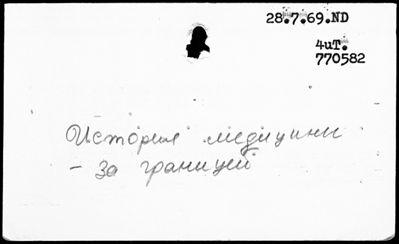 28.7.69.ND
4иT.
770582
История медицины
- за границей